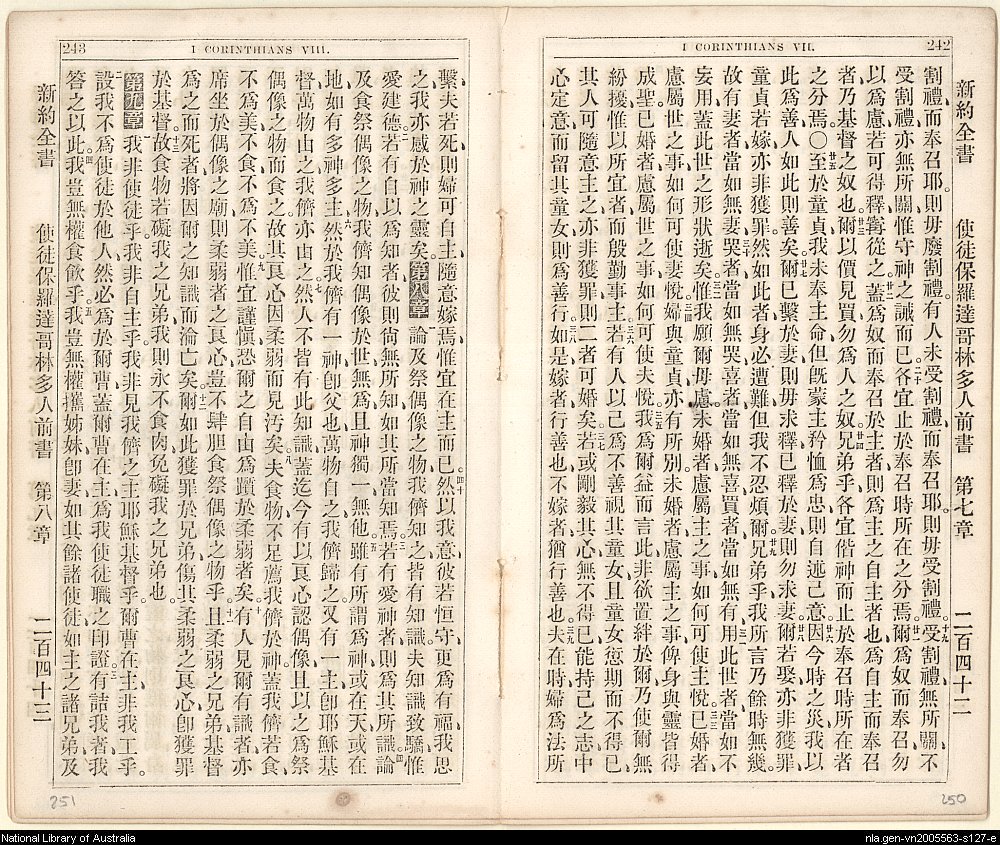 242
I CORINTHIANS VII.
新約全書 使徒保羅達哥林多人前書 第七章 二百四十二
割禮、而奉召耶、則毋廢割禮。有人未受割禮、而奉召耶、則毋受割禮。十九受割禮無所關、不
受割禮、亦無所關、惟守神之誡而已。二十各宜止於奉召時所在之分焉。廿一爾為奴而奉召、勿
以為慮、若可得釋、寧從之。廿二蓋為奴而奉召於主者、則為主之自主者也、為自主而奉召
者、乃基督之奴也。廿三爾以價見買、勿為人之奴。廿四兄弟乎、各宜偕神而止於奉召時所在
之分焉。〇廿五至於童貞、我未奉主命、但既蒙主矜恤為忠、則自述己意。廿六因今時之災、我以
此為善、人如此則善矣。廿七爾已繫於妻、則毋求釋、已釋於妻、則勿求妻。廿八爾若娶、亦非獲罪、
童貞若嫁、亦非獲罪、然如此者身必遭難、但我不忍煩爾。廿九兄弟乎、我所言乃餘時無幾、
故有妻者當如無妻、三十哭者當如無哭、喜者當如無喜、買者當如無有、三一用此世者當如不
妄用、蓋此世之形狀逝矣。三二惟我願爾毋慮、未婚者慮屬主之事、如何可使主悅、三三已婚者
慮屬世之事、如何可使妻悅。三四婦與童貞亦有所別、未婚者慮屬主之事、俾身與靈皆得
成聖、已婚者慮屬世之事、如何可使夫悅。三五我為爾益而言此、非欲置絆於爾、乃使爾無
紛擾、惟以所宜者而殷勤事主。三六若有人以己為不善視其童女、且童女愆期而不得已、
其人可隨意主之、亦非獲罪、則二者可婚矣。三七若或剛毅其心、無不得已、能持己之志、中
心定意而留其童女、則為善行。三八如是嫁者行善也、不嫁者猶行善也。三九夫在時、婦為法所
250
243
I CORINTHIANS VIII.
繫、夫若死、則婦可自主、隨意嫁焉、惟宜在主而已。四十然以我意、彼若恒守、更為有福、我思
之、我亦感於神之靈矣。第八章 論及祭偶像之物、我儕知之、蓋皆有知識、夫知識致驕、惟
愛建德。二若有自以為知者、彼則尚無所知、如其所當知焉。三若有愛神者、則為其所識。四論
及食祭偶像之物、我儕知偶像於世無為、且神獨一無他。五雖有所謂為神、或在天、或在
地、如有多神多主、六然於我儕有一神、即父也、萬物自之、我儕歸之、又有一主、即耶穌基
督、萬物由之、我儕亦由之。七然人不皆有此知識、蓋迄今有以良心認偶像、且以之為祭
偶像之物而食之、故其良心因柔弱而見汚矣。八夫食物不足薦我儕於神、蓋我儕若食、
不為美、不食、不為不美。九惟宜謹慎、恐爾之自由為躓於柔弱者矣。十有人見爾有識者、亦
席坐於偶像之廟、則柔弱者之良心、豈不肆胆食祭偶像之物乎、且柔弱之兄弟、基督
為之而死者、將因爾之知識而淪亡矣。十二爾如此獲罪於兄弟、傷其柔弱之良心、即獲罪
於基督。十三故食物若礙我之兄弟、我則永不食肉、免礙我之兄弟也。
第九章 一我非使徒乎、我非自主乎、我非見我儕之主耶穌基督乎、爾曹在主、非我工乎。
二設我不為使徒於他人、然必為於爾曹、蓋爾曹在主、為我使徒職之印證。三有詰我者、我
答之以此、四我豈無權食飲乎。五我豈無權攜姊妹、即妻、如其餘諸使徒、如主之諸兄弟、及
新約全書 使徒保羅達哥林多人前書 第八章 二百四十三
251
National Library of Australia
nla.gen-vn2005563-s127-e